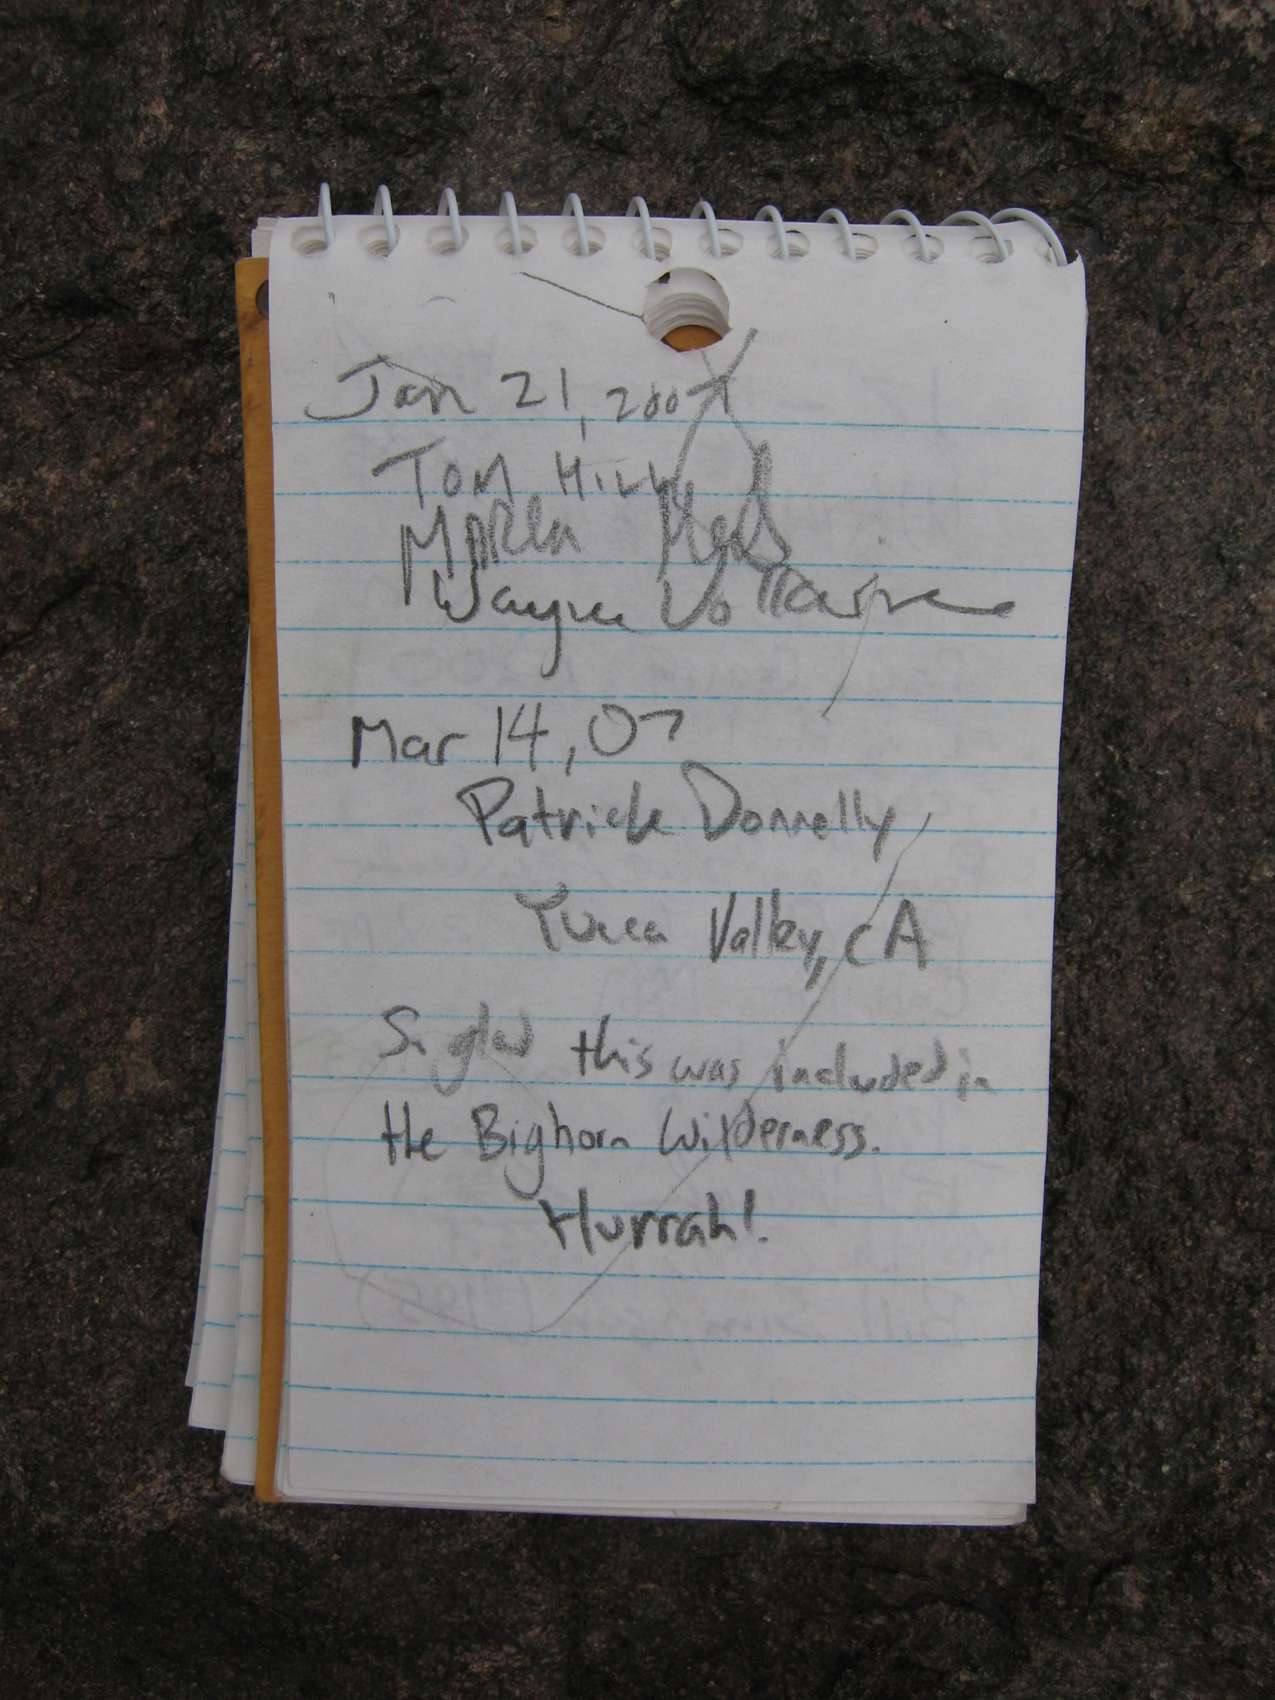 Jan 21, 2007
Tom Hill
Marla
Wayne Vollaire
Mar 14, 07
Patrick Donnelly
Yucca Valley, CA
So glad this was included in
the Bighorn Wilderness.
Hurrah!